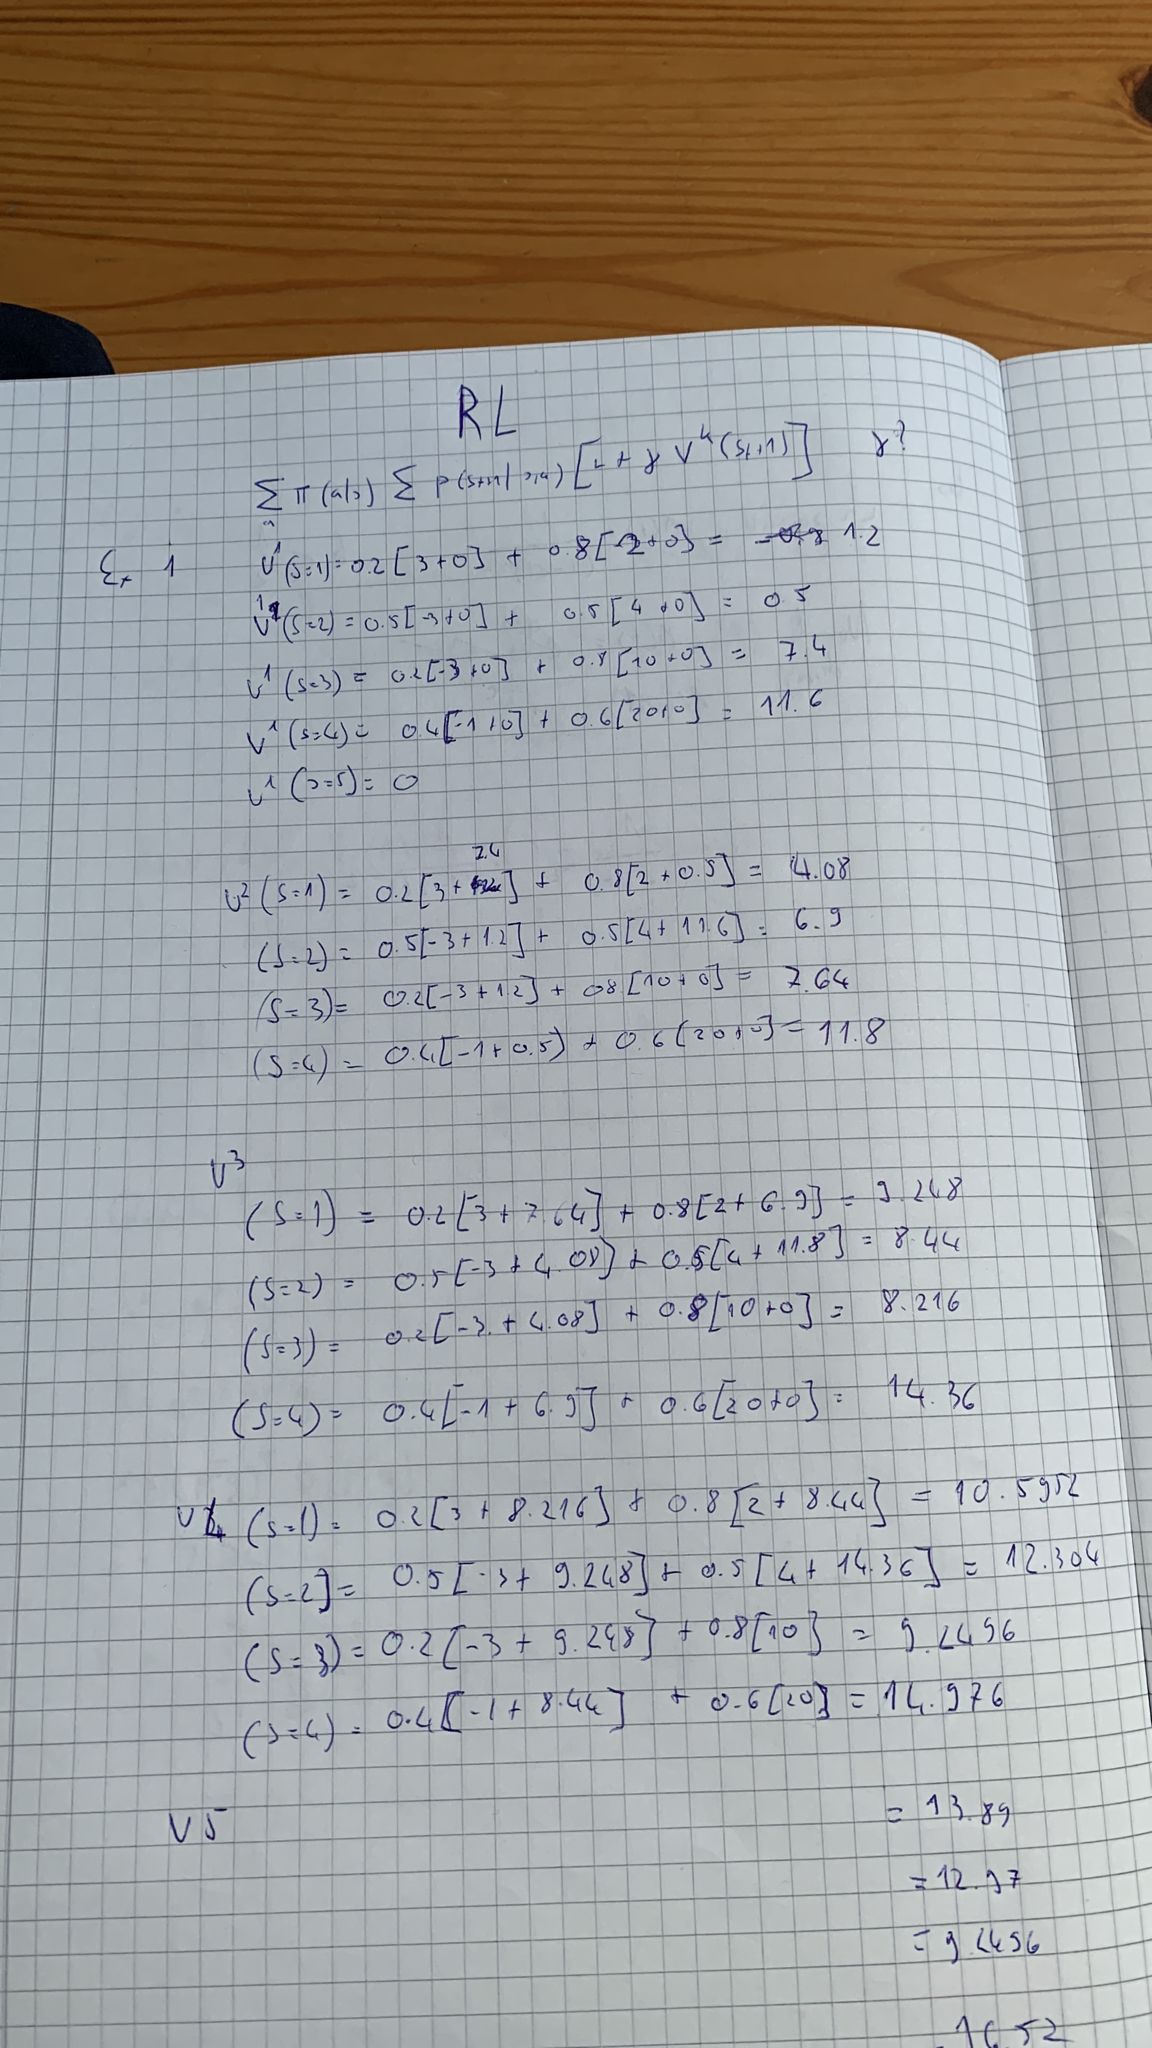 RL
Σ π(a|s) Σ p(st+1|s,a) [r + γ V^k(st+1)] γ?
a
Ex 1 V¹(S=1) = 0.2[3+0] + 0.8[-2+0] = 1.2
V¹(S=2) = 0.5[-3+0] + 0.5[4+0] = 0.5
V¹(S=3) = 0.2[-3+0] + 0.8[10+0] = 7.4
V¹(S=4) = 0.4[-1+0] + 0.6[20+0] = 11.6
V¹(S=5) = 0
7.4
V²(S=1) = 0.2[3+] + 0.8[2+0.5] = 4.08
(S=2) = 0.5[-3+1.2] + 0.5[4+11.6] = 6.9
(S=3) = 0.2[-3+1.2] + 08[10+0] = 7.64
(S=4) = 0.4[-1+0.5) + 0.6(20+0] = 11.8
V³
(S=1) = 0.2[3+7.64] + 0.8[2+6.9] = 9.248
(S=2) = 0.5[-3+4.08] + 0.5[4+11.8] = 8.44
(S=3) = 0.2[-3+4.08] + 0.8[10+0] = 8.216
(S=4) = 0.4[-1+6.9] + 0.6[20+0] = 14.36
V4 (S=1) = 0.2[3+8.216] + 0.8[2+8.44] = 10.5952
(S=2] = 0.5[-3+9.248] + 0.5[4+14.36] = 12.304
(S=3) = 0.2[-3+9.248] + 0.8[10] = 9.2496
(S=4) = 0.4[-1+8.44] + 0.6[20] = 14.976
V5 = 13.89
= 12.97
= 9.2496
16.52